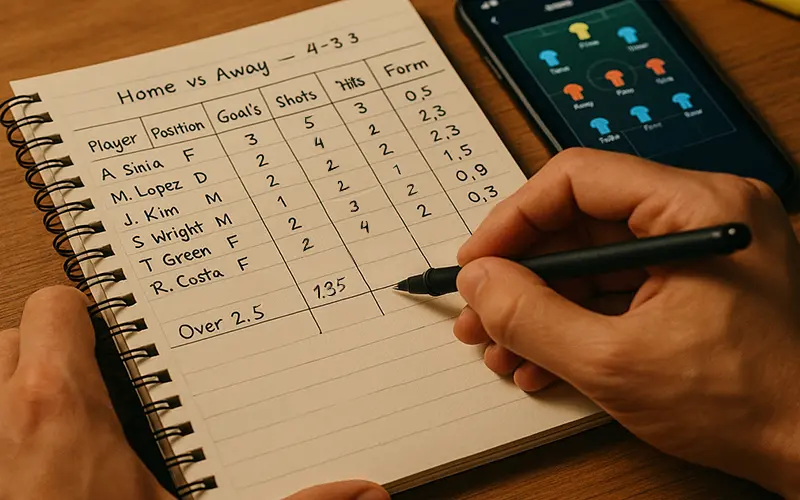 Home vs Away — 4-3 3
Player Position Goal's Shots Hits Form
A Sinia F 3 5 3 0,5
M. Lopez D 2 4 2 2,3
J. Kim M 2 2 2 2,3
S Wright M 1 2 1 1,5
T Green F 2 3 2 0,9
R. Costa F 2 4 2 0,3
Over 2.5 1.35